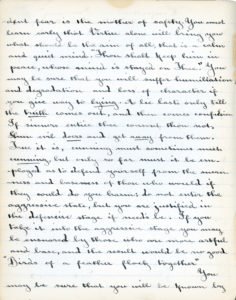 dful fear is the mother of safety. You must
learn early that Virtue alone will bring you
what should be the aim of all, that is a calm
and quiet mind. "Thou shall keep him in
peace, whose mind is stayed on Thee." You
may be sure that you will suffer humiliation
and degradation and loss of character if
you give way to lying. A lie lasts only till
the truth comes out, and then comes confusion
If sinners entice thee thou not,
Shun evil doers and get away from them.
True it is, cunning must sometimes meet
cunning, but only so far must it be em-
ployed as to defend yourself from the mean-
ness and baseness of those who would if
they could do you harm, do not enter the
aggressive state, but you are justified in
the defensive stage if needs be. If you
take it into the aggressive stage you may
be ensnared by those who are more artful
and base, and the result would be no good.
"Birds of a feather flock together"
You
may be sure that you will be known by